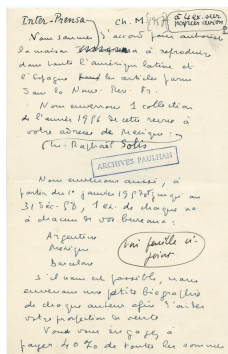 Inter-Prensa
ch. M
à 4 ex. sur
papier avion
Nous sommes d'accord pour autoriser
la maison à reproduire
dans toute l'amérique latine et
l'Espagne les articles parus
dans la Nouv. Rev. Fr.
Nous enverrons 1 collection
de l'année 1956 de cette revue à
votre adresse de Mexique :
Raphaël Solis
ARCHIVES PAULHAN
Nous enverrons aussi, à
partir du 1er janvier 1957 jusqu'au
31 Déc. 1 ex. de chaque no
à chacun de vos bureaux :
Argentine
Mexique
Barcelone
voir feuille ci-
jointe
s'il vous est possible, nous
enverrons une petite biographie
de chaque auteur afin d'aider
votre prospection de vente
Vous vous engagez à
payer 40% de toutes les sommes